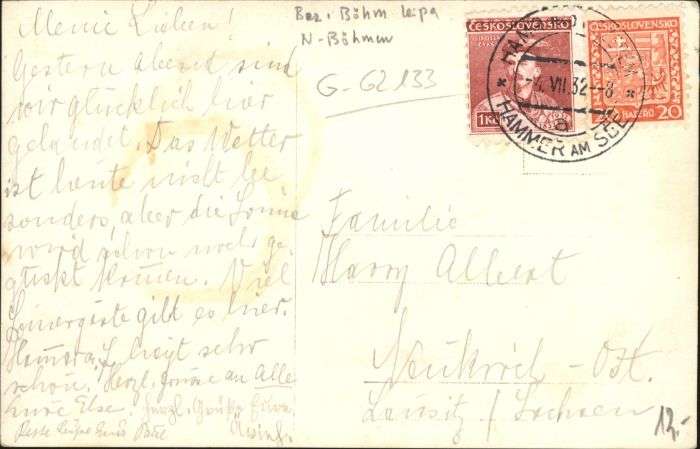 Meine Lieben!
Gestern abend sind
wir glücklich hier
gelandet. Das Wetter
ist heute nicht be
sonders, aber die Sonne
wird schon noch ge
Kommen. Viel
gibt es hier.
liegt sehr
schön. Herzl. Grüße an Alle
Eure Else. Herzl. Grüße
Beste Grüße
Bez. Böhm Leipa
N-Böhmen
G-G2133
ČESKOSLOVENSKO
1Kč
ČESKOSLOVENSKO
HALÉŘŮ 20
VII.32-8
HAMMER AM SEE
Familie
Harry Albert
Ost.
Lausitz / Sachsen
12.-